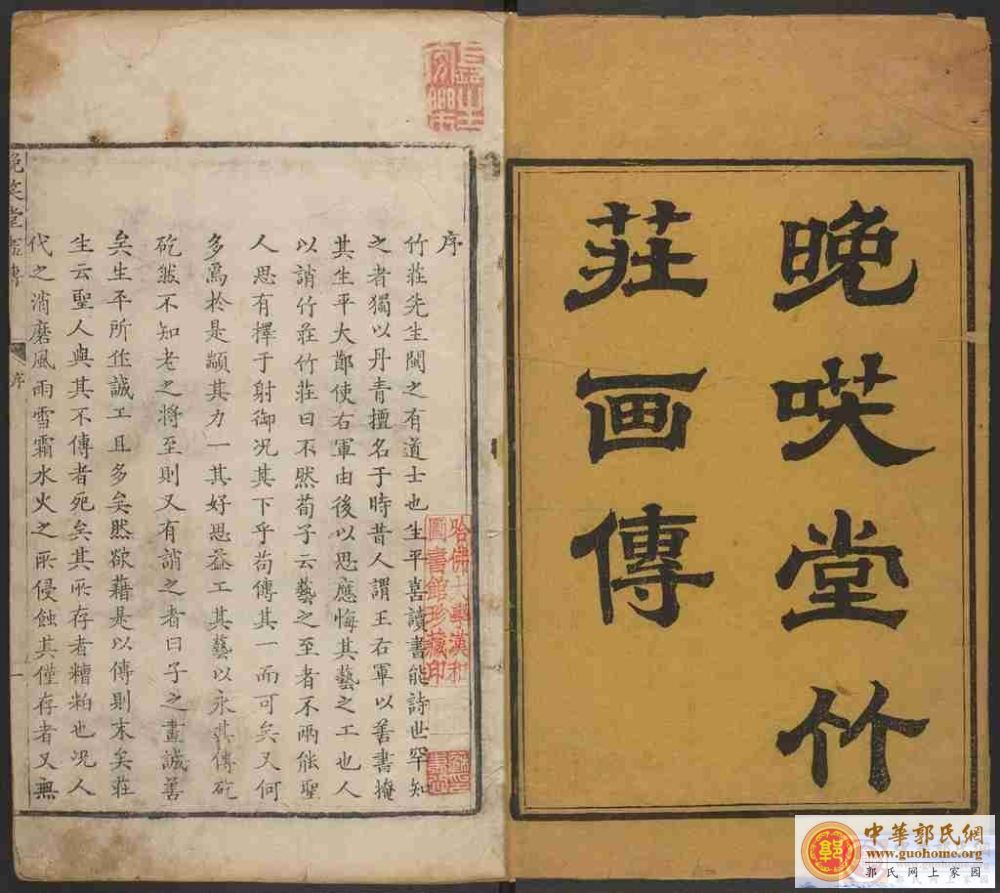 晚笑堂竹
莊画傳
序
竹莊先生閩之有道士也生平喜讀書能詩世罕知
之者獨以丹青擅名于時昔人謂王右軍以善書掩
其生平大鄙使右軍由後以思應悔其藝之工也人
以誚竹莊竹莊曰不然荀子云藝之至者不兩能聖
人思有擇于射御况其下乎苟傳其一而可矣又何
多焉於是顓其力一其好思益工其藝以永其傳矻
矻然不知老之將至則又有誚之者曰子之畫誠善
矣生平所作誠工且多矣然欲藉是以傳則末矣莊
生云聖人與其不傳者死矣其所存者糟粕也况人
代之消磨風雨雪霜水火之所侵蝕其僅存者又無
晚笑堂畫傳
序
一
哈佛大學漢和
圖書館珍藏印
中華郭氏網
www.guohome.org
郭氏网上家园